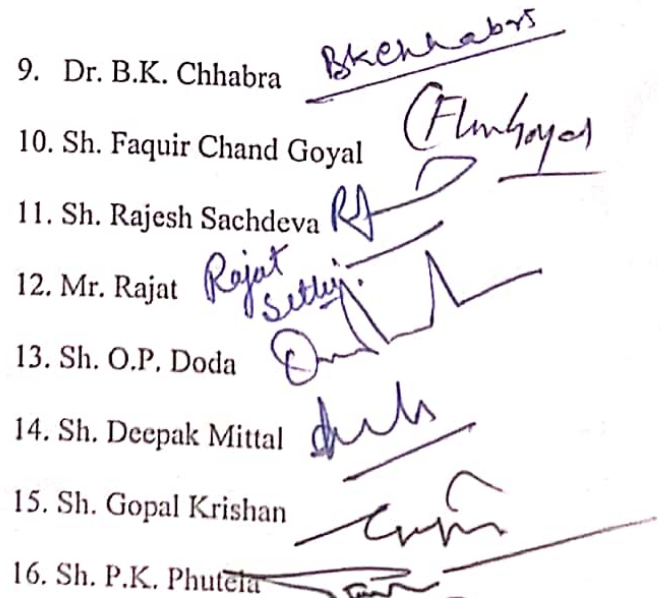 9. Dr. B.K. Chhabra BKChhabra
10. Sh. Faquir Chand Goyal
11. Sh. Rajesh Sachdeva
12. Mr. Rajat Rajat
Sethi
13. Sh. O.P. Doda
14. Sh. Deepak Mittal
15. Sh. Gopal Krishan
16. Sh. P.K. Phutela